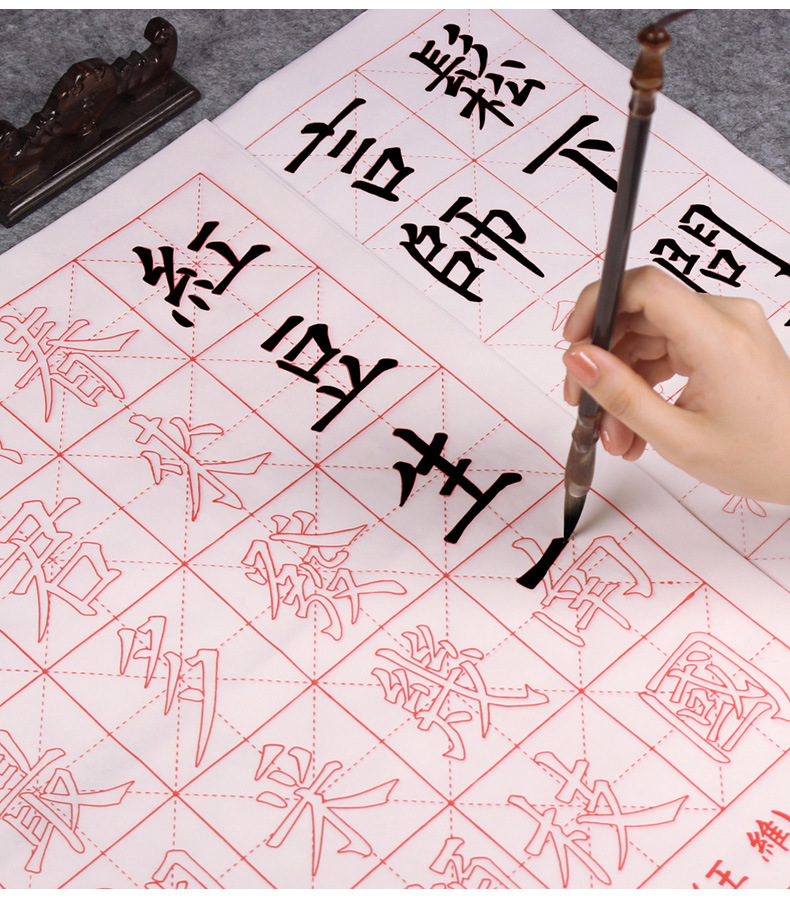 鬆下問
言師
紅豆生南國
春來發幾枝
君多采
最
王維